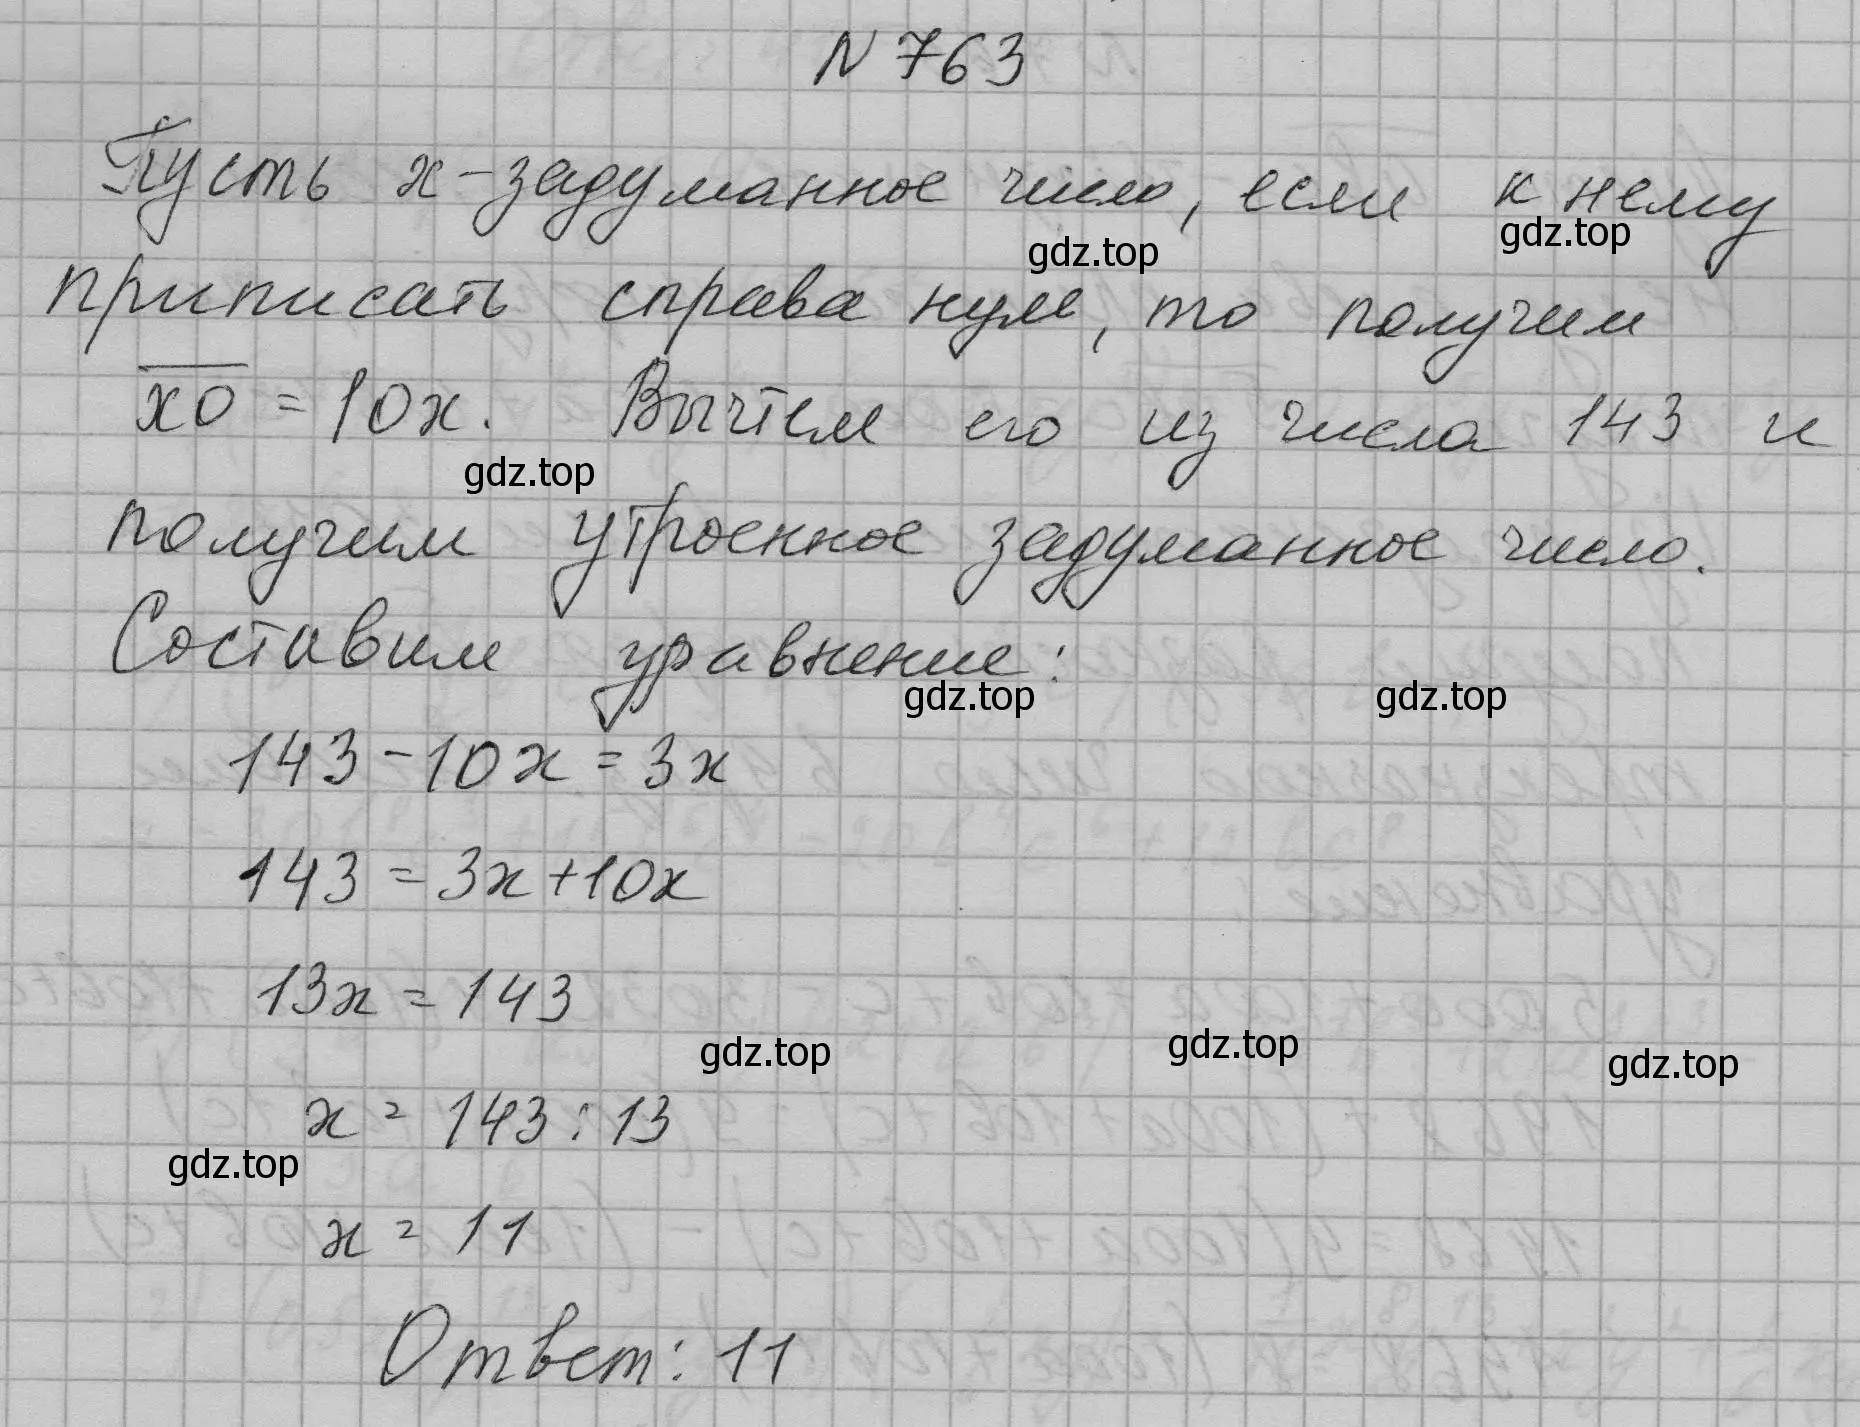 N 763
Пусть x - задуманное число, если к нему
gdz.top gdz.top
приписать справа нуль, то получим
x0 = 10x. Вычтем его из числа 143 и
gdz.top
получим утроенное задуманное число.
Составим уравнение:
gdz.top gdz.top
143 - 10x = 3x
143 = 3x + 10x
13x = 143
gdz.top gdz.top gdz.top
x = 143 : 13
gdz.top
x = 11
Ответ: 11